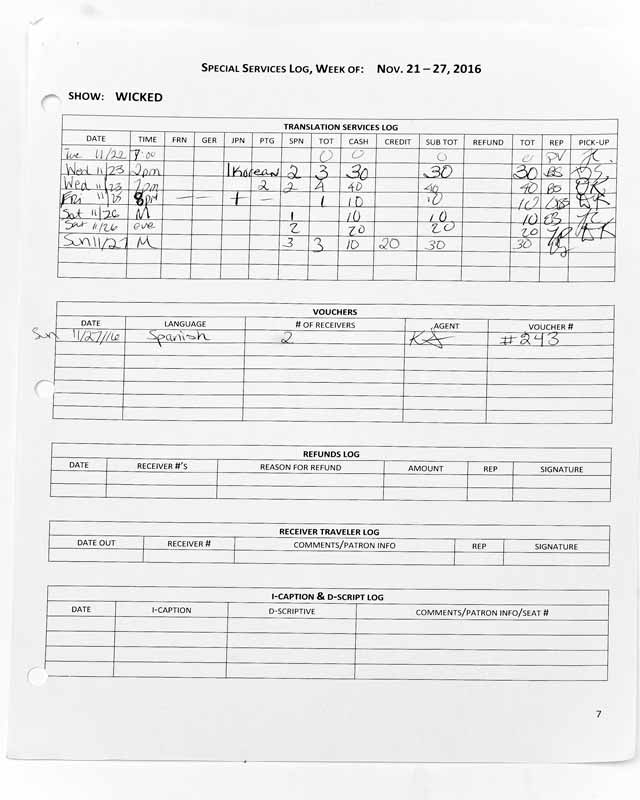 SPECIAL SERVICES LOG, WEEK OF: NOV. 21 – 27, 2016
SHOW: WICKED
TRANSLATION SERVICES LOG
DATE TIME FRN GER JPN PTG SPN TOT CASH CREDIT SUB TOT REFUND TOT REP PICK-UP
Tue 11/22 7:00 0 0 0 0 PV
Wed 11/23 2pm 1 Korean 2 3 30 30 30 BS
Wed 11/23 7pm 2 2 4 40 40 40 BS DK
Fri 11/25 8pm — — + — 1 10 10 10 DK
Sat 11/26 M 1 10 10 10
Sat 11/26 eve 2 20 20 20 DK
Sun 11/27 M 3 3 10 20 30 30
VOUCHERS
DATE LANGUAGE # OF RECEIVERS AGENT VOUCHER #
Sun 11/27/16 Spanish 2 KA #243
REFUNDS LOG
DATE RECEIVER #'S REASON FOR REFUND AMOUNT REP SIGNATURE
RECEIVER TRAVELER LOG
DATE OUT RECEIVER # COMMENTS/PATRON INFO REP SIGNATURE
I-CAPTION & D-SCRIPT LOG
DATE I-CAPTION D-SCRIPTIVE COMMENTS/PATRON INFO/SEAT #
7